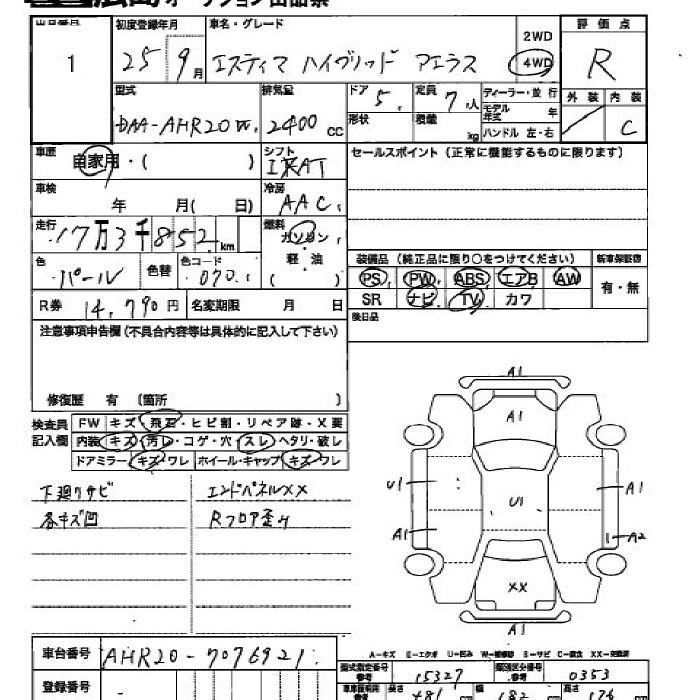 広島オークション出品票
出品番号 初度登録年月 車名・グレード 2WD 評価点
1 25 9月 エスティマ ハイブリッド アエラス 4WD R
型式 排気量 ドア 5 定員 7人 ディーラー・並行 外装 内装
DAA-AHR20W 2400cc 形状 積載 kg モデル年式 年 C
ハンドル 左・右
車歴 自家用・( ) シフト IRAT セールスポイント(正常に機能するものに限ります)
車検 年 月( 日) 冷房 AAC
走行 17万3千852km 燃料 ガソリン
色 パール 色替 色コード 070 軽・油 ( )
装備品(純正品に限り○をつけてください) 新車保証書
PS PW ABS エアB AW 有・無
SR ナビ TV カワ
R券 14,790円 名変期限 月 日 後日品
注意事項申告欄(不具合内容等は具体的に記入して下さい)
修復歴 有 (箇所 )
検査員記入欄 FW キズ・飛石・ヒビ割・リペア跡・X要
内装 キズ・汚レ・コゲ・穴・スレ・ヘタリ・破レ
ドアミラー キズ・ワレ ホイール・キャップ キズ・ワレ
下廻りサビ エンドパネルXX
各キズ凹 Rフロア歪み
A1
A1
U1 U1 A1
A1 A2
XX
A1
A-キズ E-エクボ U-凹み W-補修跡 S-サビ C-腐食 XX-交換済
車台番号 AHR20-7076921
型式指定番号 参考 15327 類別区分番号 参考 0353
登録番号 -
長さ 481 幅 182 高さ 176